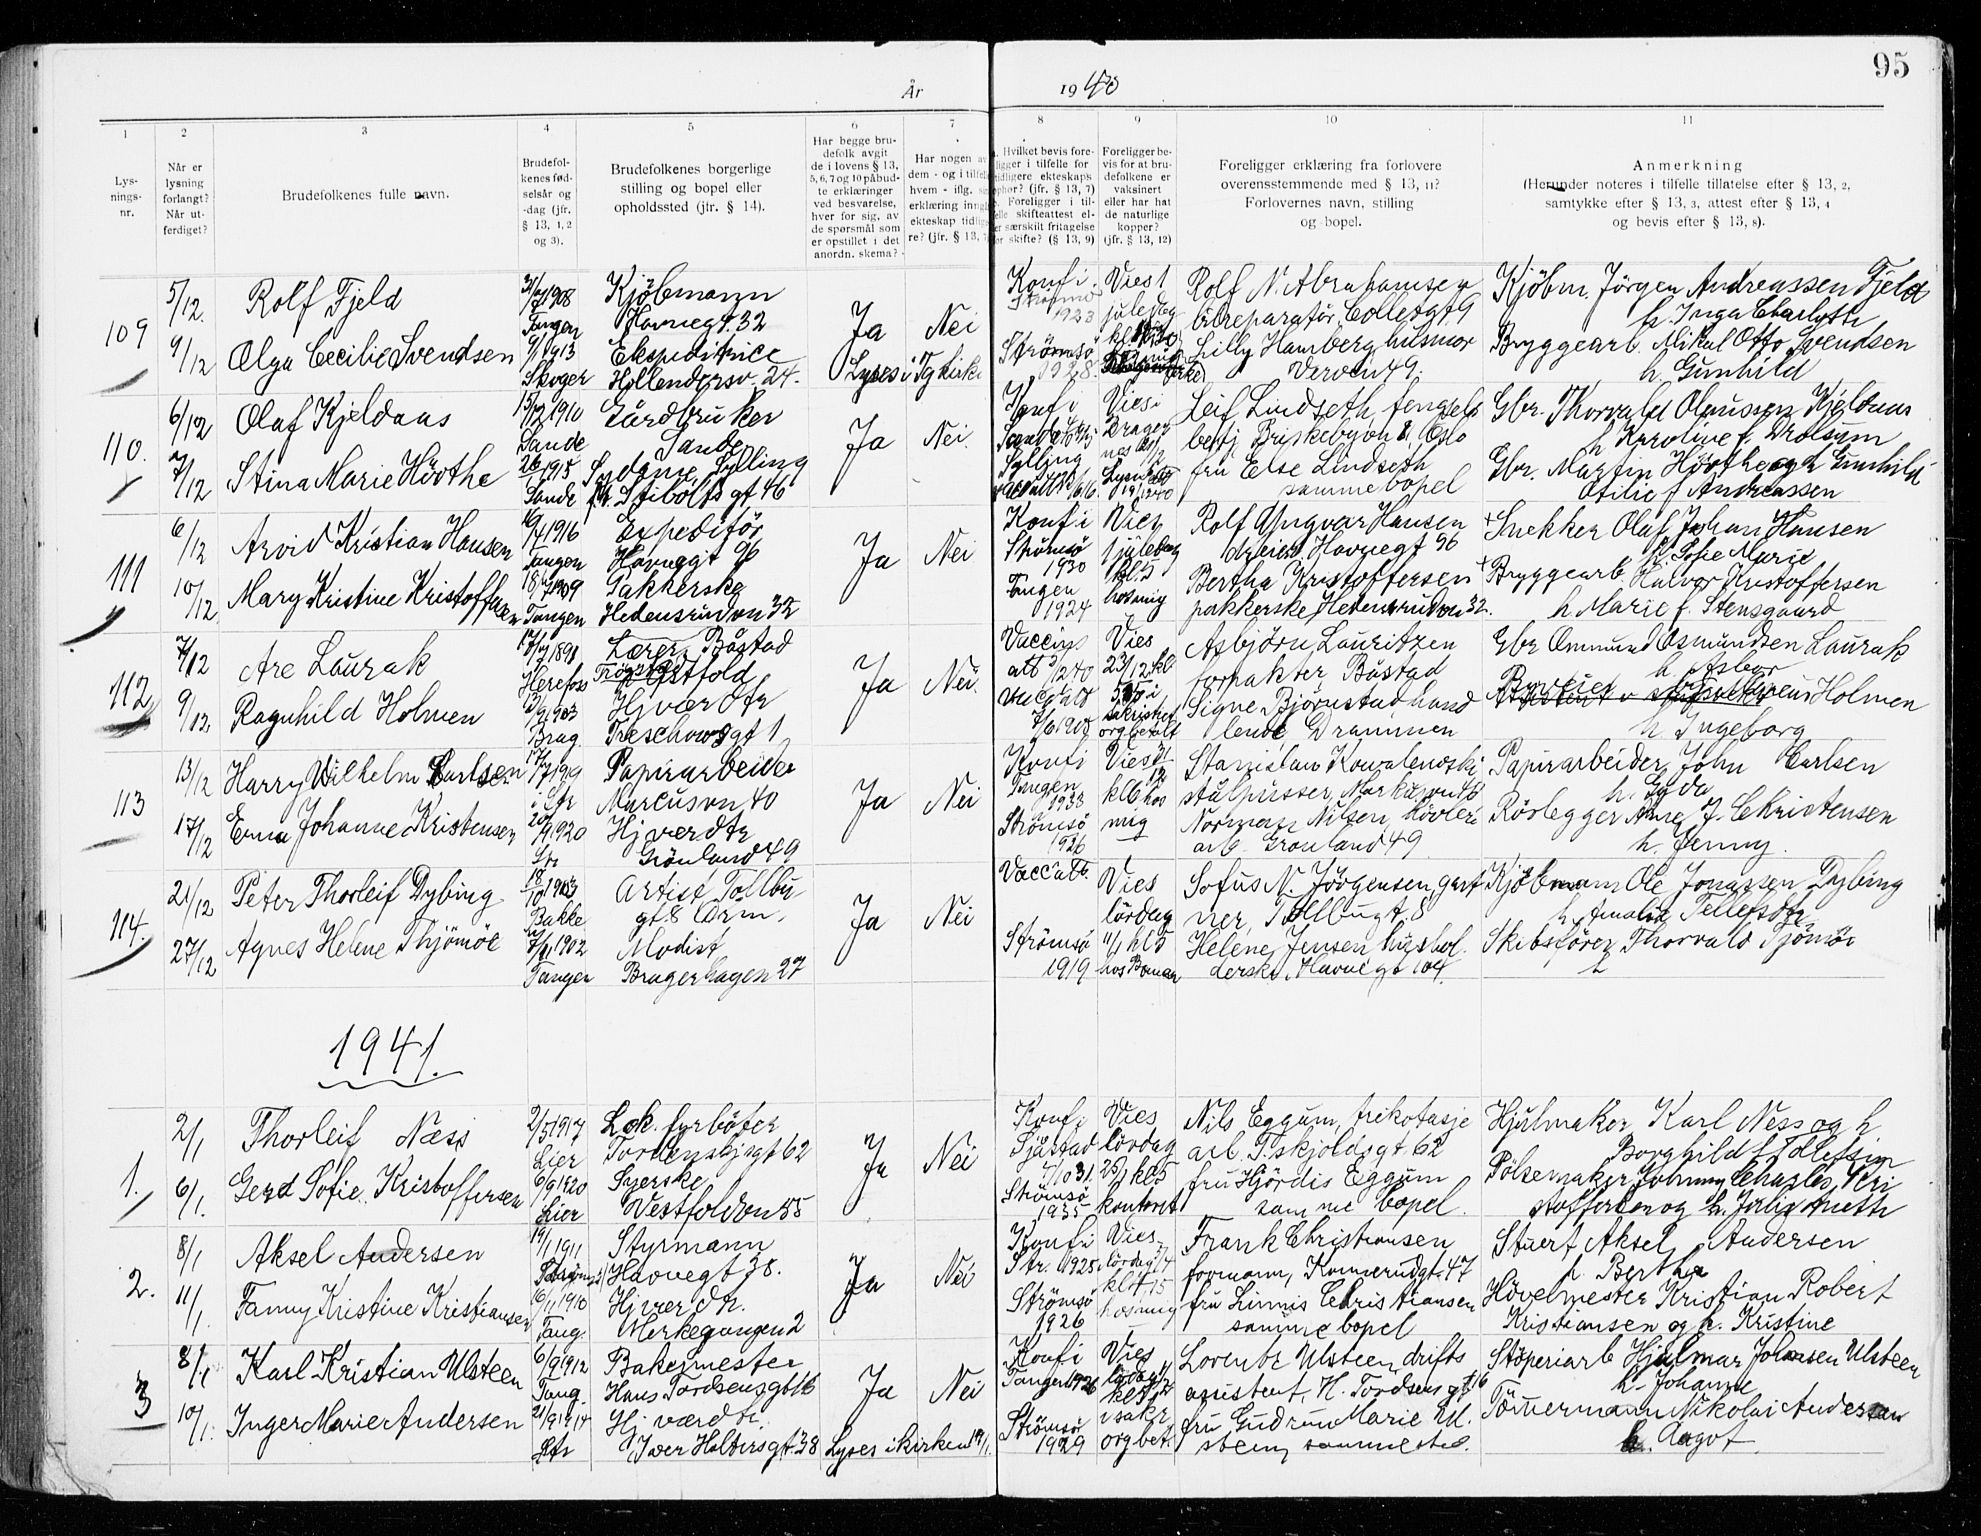 95
År 1940
1
2
3
4
5
6
7
8
9
10
11
Lys-
nings-
nr.
Når er
lysning
forlangt?
Når ut-
ferdiget?
Brudefolkenes fulle navn.
Brudefol-
kenes fød-
selsår og
-dag (jfr.
§ 13, 1, 2
og 3).
Brudefolkenes borgerlige
stilling og bopel eller
opholdssted (jfr. § 14).
Har begge bru-
defolk avgit
de i lovens § 13,
5, 6, 7 og 10 påbud-
te erklæringer
ved besvarelse,
hver for sig, av
de spørsmål som
er opstillet i det
anordn. skema?
Har nogen av
dem - og i tilfelle
hvem - iflg. se
erklæring inng
ekteskap tidlig
re? (jfr. § 13,
Hvilket bevis fore-
ligger i tilfelle for
tidligere ekteskaps
ophør? (jfr. § 13, 7)
Foreligger i til-
felle skifteattest el-
er særskilt fritagelse
for skifte? (§ 13, 9)
Foreligger be-
vis for at bru-
defolkene er
vaksinert
eller har hat
de naturlige
kopper?
(jfr. § 13, 12)
Foreligger erklæring fra forlovere
overensstemmende med § 13, 11?
Forlovernes navn, stilling
og bopel.
Anmerkning
(Herunder noteres i tilfelle tillatelse efter § 13, 2,
samtykke efter § 13, 3, attest efter § 13, 4
og bevis efter § 13, 8).
109
5/12.
9/12
Rolf Fjeld
Olga Cecilie Svendsen
1908
Tangen
1913
Skoger
Kjöbmann
Havnegt. 32
Ekspeditrice
Hollendersv. 24.
Ja
Nei
Lyses i Tg kirke
Konf i
1923
Strömsö
1928.
Vies 1
juledag
Rolf N. Abrahamsen
bilreparatör, Colletsgt 9
Lilly Hamberg husmor
Verven 49.
Kjöbm. Jörgen Andreassen Fjeld
h. Inga Charlotte
Bryggearb. Mikal Otto Svendsen
h. Gunhild
110.
6/12
7/12
Olaf Kjeldaas
Stina Marie Hövthe
15/12 1910
Sande
26/ 1915
Sande
Gårdbruker
Sande
Sydame, Sylling
Ja
Nei
Konf i
Sande
Sylling
Vies i
Leif Lindseth
Briskebyvn 8, Oslo
fru Else Lindseth
samme bopel
Gbr. Thorvald Olaussen Kjeldaas
h Karoline f. Drolsum
Gbr. Martin Hövthe og h Gunhild
Otilie f Andreassen
111
6/12
10/12
Arvid Kristian Hansen
Mary Kristine Kristoffersen
1916
Tangen
1909
Tangen
Expeditör
Havnegt 96
Pakkerske
Hedensrudvn 32
Ja
Nei
Konf i
Strömsö
1930
Tangen
1924
Vies
1 juledag
kl. 5
hos mig
Rolf Yngvar Hansen
dreier, Havnegt 96
Bertha Kristoffersen
pakkerske Hedensrudvn 32.
+Snekker Olaf Johan Hansen
h. Sofie Marie
+Bryggearb Halvor Kristoffersen
h Marie f. Stensgaard
112
7/12
9/12
Are Laurak
Ragnhild Holmen
Herefoss
1903
Brag.
Lærer, Båstad
Östfold
Hj.værdtr
Treschowsgt 1
Ja
Nei.
Vaccins
att
1907
Vies
23/12 kl
Asbjörn Lauritzen
forpakter Båstad
Signe Björnstad
Drammen
Gbr Ommund Osmundsen Laurak
h. Asbor
Holmen
h Ingeborg
113
13/12
17/12
Harry Wilhelm Carlsen
Erna Johanne Kristensen
1919
Str
1920
Str
Papirarbeider
Marcusvn 40
Hj.værdtr
Grönland 49
Ja
Nei
Konf i
Tangen
1933
Strömsö
1926
Vies
kl 6 hos
mig
Stanislaw Kowalewski
stålpusser, Markusvn 40
Norman Nilsen, hövleri
arb. Grönland 49
Papirarbeider John Carlsen
h. Gyda
Rörlegger Arne J. Christensen
h. Jenny.
114
21/12
27/12
Peter Thorleif Dybing
Agnes Helene Thjömöe
1903
Bakke
1902
Tangen
Artist Tollbu
gt 8 Drm.
Modist
Bragerhagen 27
Ja
Nei
Vacc att.
Strömsö
1919
Vies
lördag
11/1 kl 5
Sofus N. Jörgensen, gart
ner, Tollbugt. 8
Helene Jensen hushol.
derske, Havnegt 104.
Kjöbmann Ole Jonassen Dybing
h. Amalia Tellefsdtr
Skibsförer Thorvald Tjömöe
h
1941.
1.
2/1
6/1.
Thorleif Næss
Gerd Sofie Kristoffersen
2/5 1917
Lier
6/9 1920
Lier
Lok. fyrböter
Tordenskj.gt 62
Syerske
Vestfoldvn 55
Ja
Nei
Konf i
Sjåstad
Strömsö
1935
Vies
lördag
25/1 kl 5
kontoret
Nils Eggum, trikotasje
arb. T.skjoldsgt 62
fru Hjördis Eggum
samme bopel.
Hjulmaker Karl Ness og h
Borghild f. Tollefsen
Pölsemaker Johnny Charles Kri
stoffersen og h. Julie Anette
2.
8/1
11/1
Aksel Andersen
Fanny Kristine Kristiansen
19/1 1911
6/11 1910
Tang.
Styrmann
Havnegt 38.
Hj værdtr.
Merkegangen 2
Ja
Nei
Konf i
Str. 1925
Strömsö
1926
Vies
lördag
kl 4,15
hos mig
Frank Christiansen
formann, Konnerudgt. 47
fru Linnis Christiansen
samme bopel
Stuert Aksel Andersen
h. Bertha
Hövelmester Kristian Robert
Kristiansen og h. Kristine
3
8/1
10/1.
Karl Kristian Ulsteen
Inger Marie Andersen
6/9 1912
Tang.
21/9 1914
Str
Bakermester
Hans Tordsensgt 16
Hj værdtr.
Iver Holtersgt. 38
Ja
Nei
Lyses i kirken 12/1.
Konf i
Tangen 1926
Strömsö
1929
Vies
lördag
i sakr
org bet.
Lorentz Ulsteen, drifts
assistent, H. Tordsensgt 16
fru Gudrun Marie Ul.
steen, sammested.
Støperiarb Hjalmar Johansen Ulsteen
h. Johanne
Törnermann Nikolai Andersen
h. Aagot